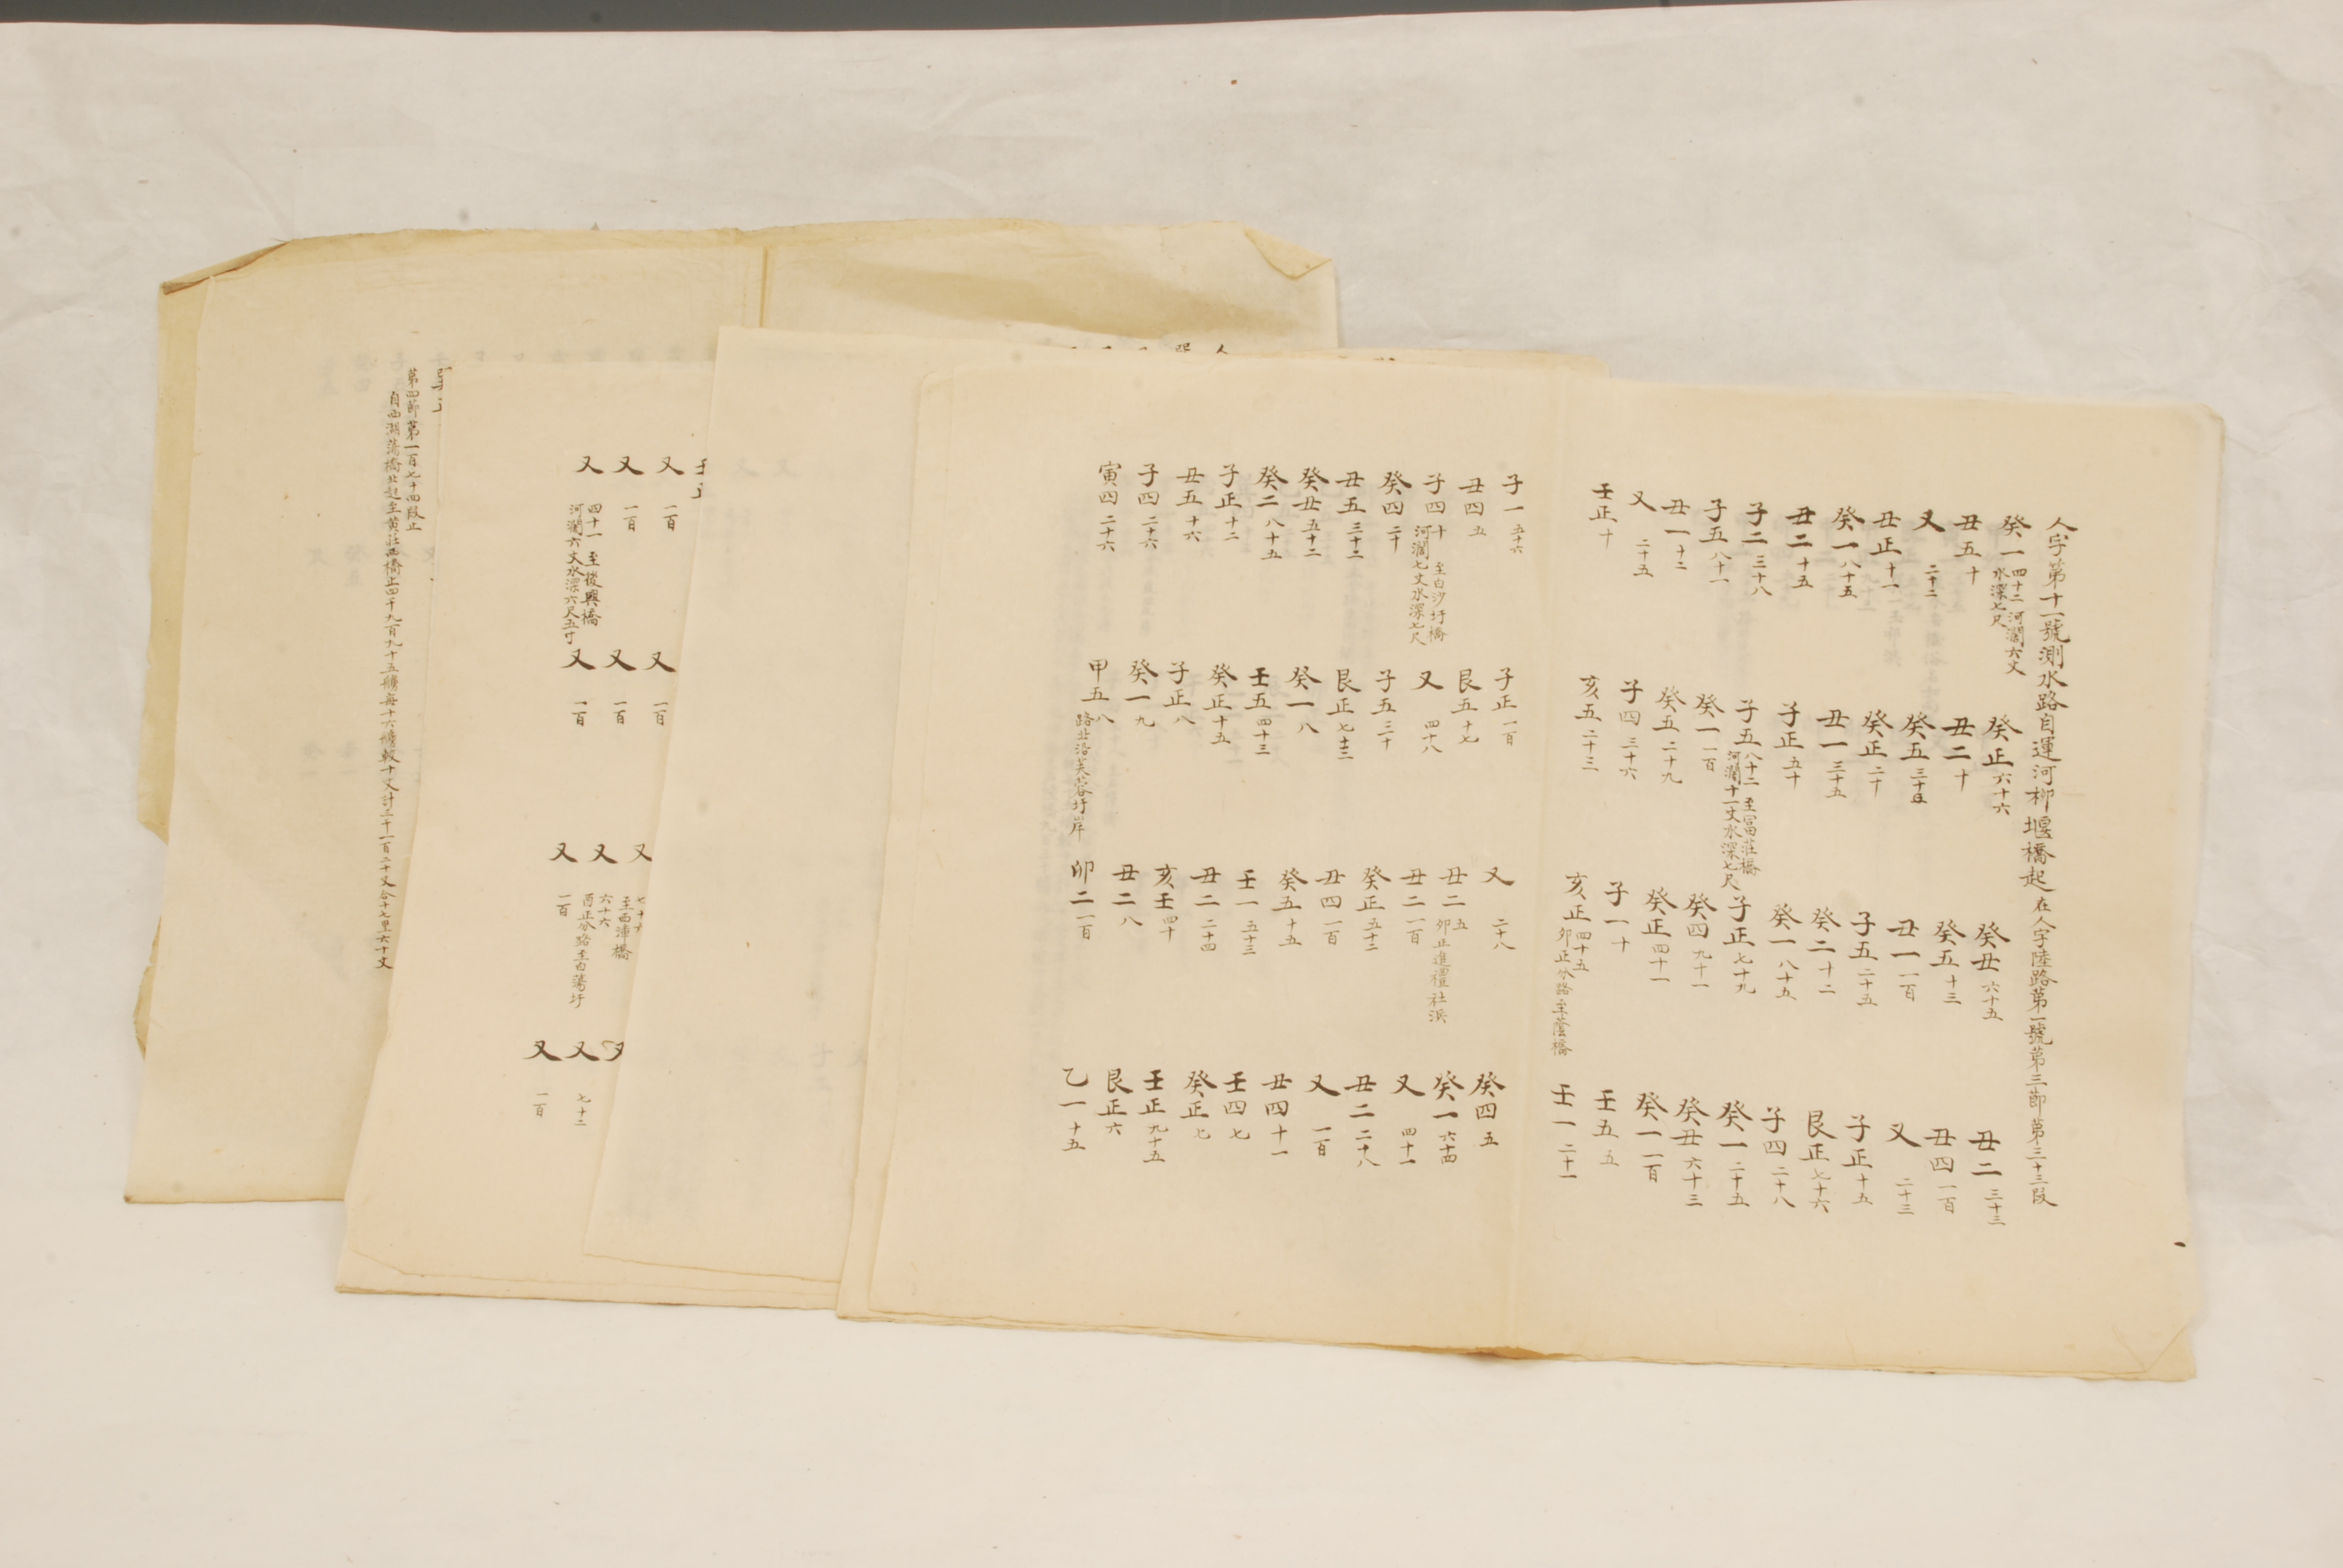 人字第十一號測水路自運河柳堰橋起在人字陸路第一號第三節第三十三段
癸一 四十二 河濶六丈水深七尺
癸正 六十六
癸丑 六十五
丑二 三十三
丑五 十
丑二 十
癸五 十三
丑四 一百
又 二十二
癸五
丑一 一百
又 二十三
丑正 十一
癸正 二十
子五 二十五
子正 十五
癸一 八十五
丑一 三十五
癸二 十二
艮正 七十六
丑二 十五
子正 五十
癸一 八十五
子四 二十八
子二 三十八
子五 八十二 至富莊橋河濶十一丈水深七尺
子正 七十九
癸一 二十五
子五 八十一
癸一 一百
癸四 九十一
癸丑 六十三
丑一 十二
癸五 二十九
癸正 四十一
癸一 一百
又 二十五
子四 三十六
子一 十
壬五 五
壬正 十
亥五 二十三
亥正 四十五 卯正分路至蔭橋
壬一 二十一
子一 五十六
子正 一百
又 二十八
癸四 五
丑四 五
艮五 十七
丑二 五 卯正進禮社浜
癸一 六十四
子四 十 至白沙圩橋河濶七丈水深七尺
又 四十八
丑二 一百
又 四十一
癸四 二十
子五 三十
癸正 五十二
丑二 二十八
丑五 三十二
艮正 七十三
丑四 一百
又 一百
癸丑 五十二
癸一 八
癸五 十五
丑四 十一
癸二 八十五
壬五 四十三
壬一 五十三
壬四 七
子正 十二
癸正 十五
丑二 二十四
癸正 七
丑五 十六
子正 八
亥壬 四十
壬正 九十五
子四 二十六
癸一 九
丑二 八
艮正 六
寅四 二十六
甲五 八 路北沿芙蓉圩岸
卯二 一百
乙一 十五
又 一百
又 一百
又 七十六 至西沛橋
又
又 一百
又 一百
又 六十六 酉正分路至白蕩圩
又 七十二
又 四十一 至後興橋河濶六丈水深六尺五寸
又 一百
又 一百
又 一百
第四節第一百七十四段止
自西湖蕩橋北起至黄莊西橋止四千九百九十五𦨵每十六𦨵較十丈計三千一百二十丈合十七里六十丈